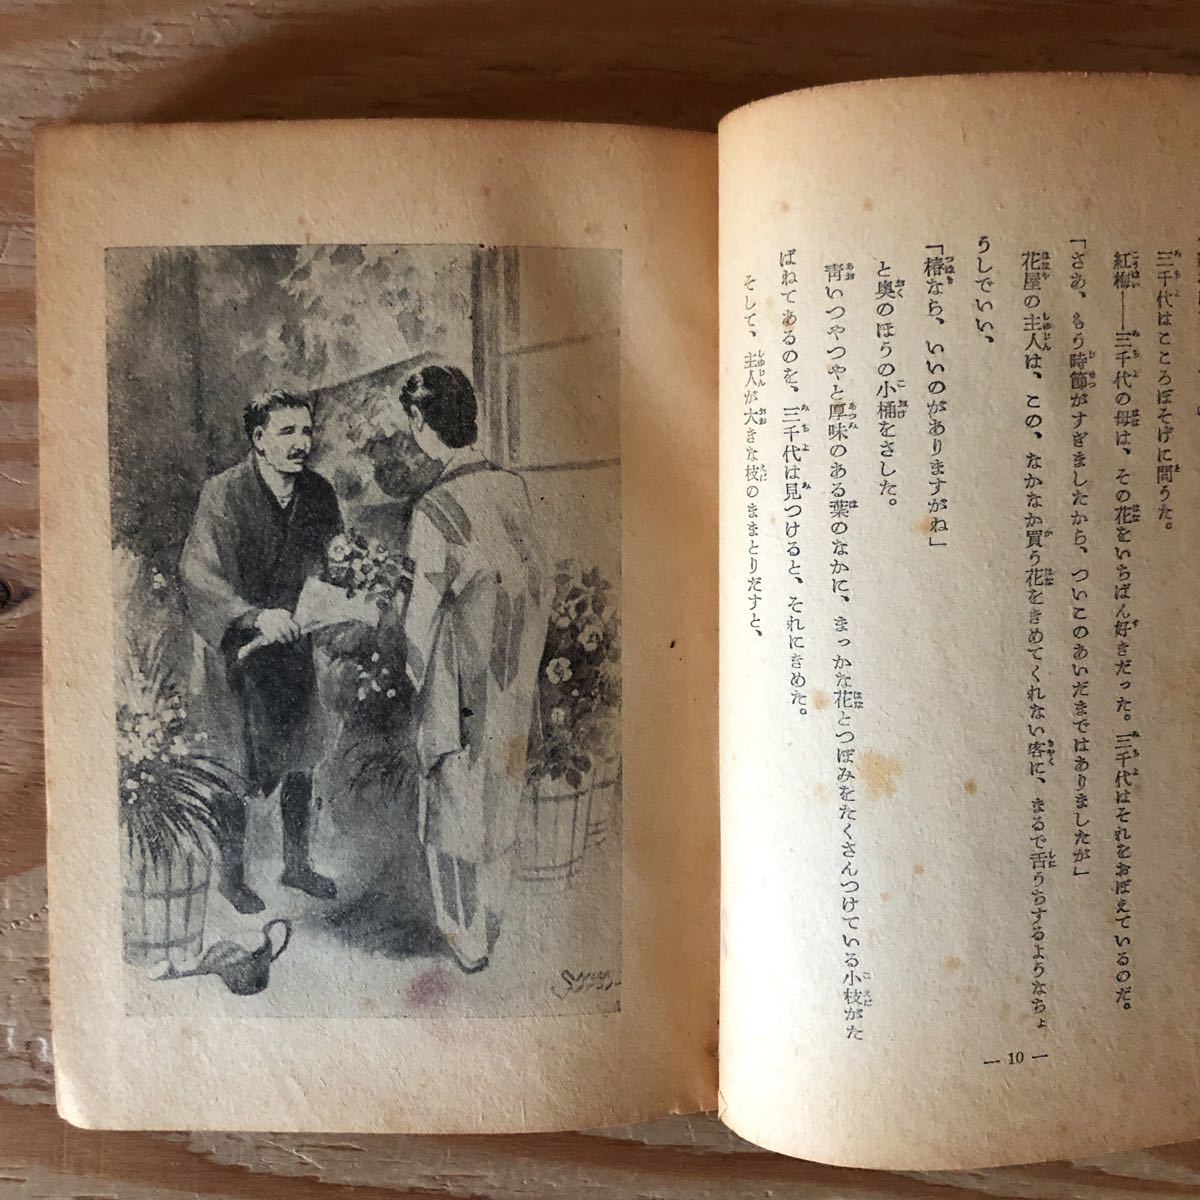 三千代はこころぼそげに問うた。
紅梅――三千代の母は、その花をいちばん好きだった。三千代はそれをおぼえているのだ。
「さあ、もう時節がすぎましたから、ついこのあいだまではありましたが」
花屋の主人は、この、なかなか買う花をきめてくれない客に、まるで舌うちするようなちょ
うしでいい、
「椿なら、いいのがありますがね」
と奥のほうの小桶をさした。
靑いつやつやと厚味のある葉のなかに、まっかな花とつぼみをたくさんつけている小枝がた
ばねてあるのを、三千代は見つけると、それにきめた。
そして、主人が大きな枝のままとりだすと、
— 10 —